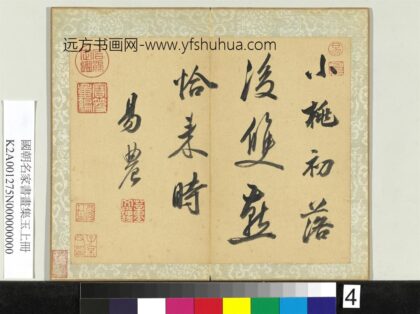 远方书画网-www.yfshuhua.com
小桃初落
後雙燕
恰來時
易農
國朝名家書畫集玉上冊
K2A001275N000000000
4